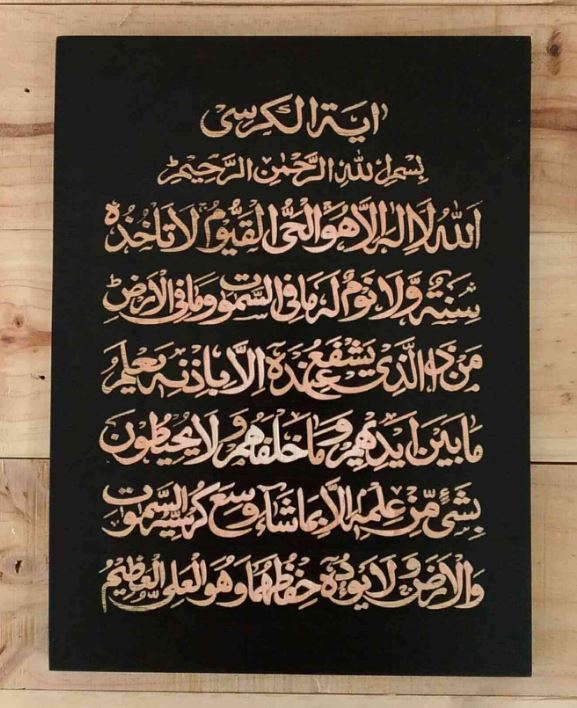 اٰیة الکرسی
بِسْمِ اللّٰهِ الرَّحْمٰنِ الرَّحِیْمِ
اَللّٰهُ لَاۤ اِلٰهَ اِلَّا هُوَ اَلْحَیُّ الْقَیُّوْمُ لَا تَاْخُذُهٗ
سِنَةٌ وَّلَا نَوْمٌ لَهٗ مَا فِی السَّمٰوٰتِ وَمَا فِی الْاَرْضِ
مَنْ ذَا الَّذِیْ یَشْفَعُ عِنْدَهٗ اِلَّا بِاِذْنِهٖ یَعْلَمُ
مَا بَیْنَ اَیْدِیْهِمْ وَمَا خَلْفَهُمْ وَلَا یُحِیْطُوْنَ
بِشَیْءٍ مِّنْ عِلْمِهٖۤ اِلَّا بِمَا شَآءَ وَسِعَ کُرْسِیُّهُ السَّمٰوٰتِ
وَالْاَرْضَ وَلَا یَئُوْدُهٗ حِفْظُهُمَا وَهُوَ الْعَلِیُّ الْعَظِیْمُ